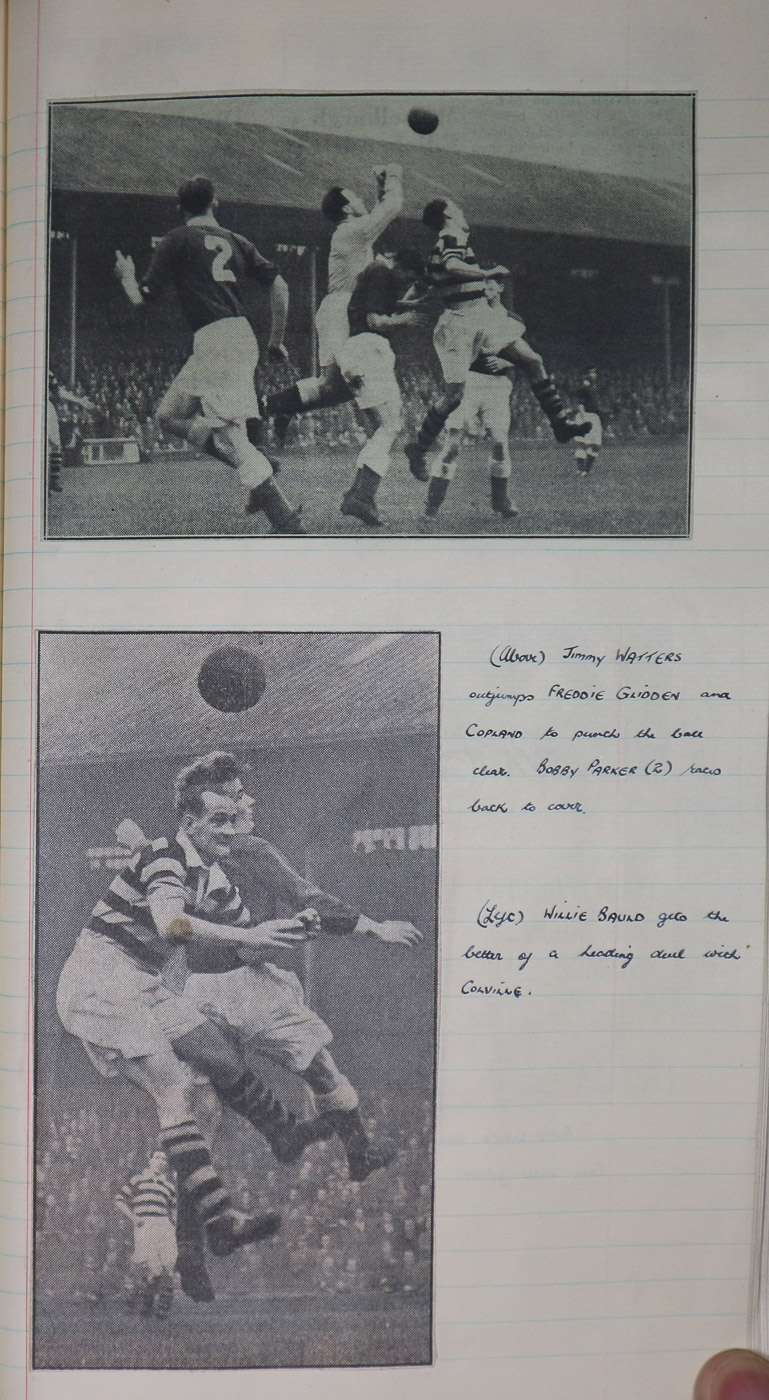 2
(Above) Jimmy WATTERS
outjumps FREDDIE GLIDDEN and
COPLAND to punch the ball
clear. BOBBY PARKER (2) races
back to cover.
(Left) WILLIE BAULD gets the
better of a heading duel with
COLVILLE.